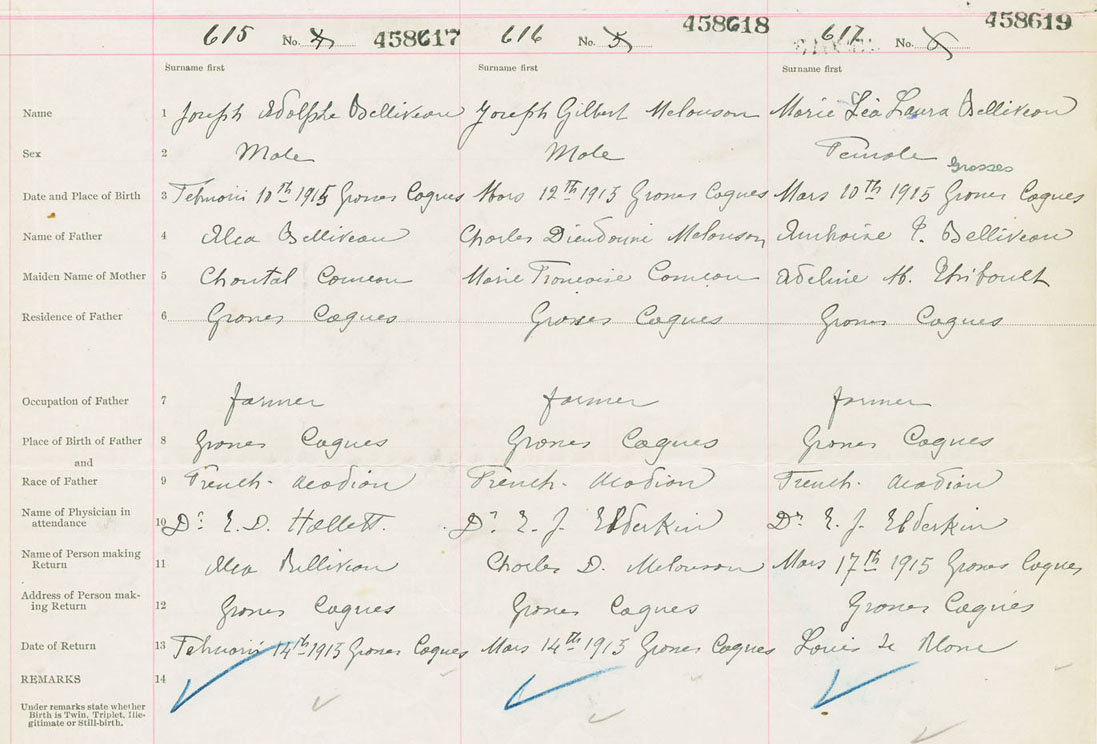 615 No. 4 458617 616 No. 5 458618 617 No. 6 458619
Surname first Surname first Surname first
Name 1 Joseph Adolphe Belliveau Joseph Gilbert Melanson Marie Léa Laura Belliveau
Sex 2 Male Male Female
Grosses
Date and Place of Birth 3 10th 1915 Grosses Coques Mars 12th 1915 Grosses Coques Mars 10th 1915 Grosses Coques
Name of Father 4 Alea Belliveau Charles Dieudonné Melanson P. Belliveau
Maiden Name of Mother 5 Chantal Comeau Marie Françoise Comeau Adeline M. Thibault
Residence of Father 6 Grosses Coques Grosses Coques Grosses Coques
Occupation of Father 7 farmer farmer farmer
Place of Birth of Father 8 Grosses Coques Grosses Coques Grosses Coques
and
Race of Father 9 French-Acadian French-Acadian French-Acadian
Name of Physician in
attendance 10 Dr. E. D. Hallett. Dr. E. J. Elderkin Dr. E. J. Elderkin
Name of Person making
Return 11 Alea Belliveau Charles D. Melanson Mars 17th 1915 Grosses Coques
Address of Person mak-
ing Return 12 Grosses Coques Grosses Coques Grosses Coques
Date of Return 13 14th 1915 Grosses Coques Mars 14th 1915 Grosses Coques Louis
REMARKS 14
Under remarks state whether
Birth is Twin, Triplet, Ille-
gitimate or Still-birth.